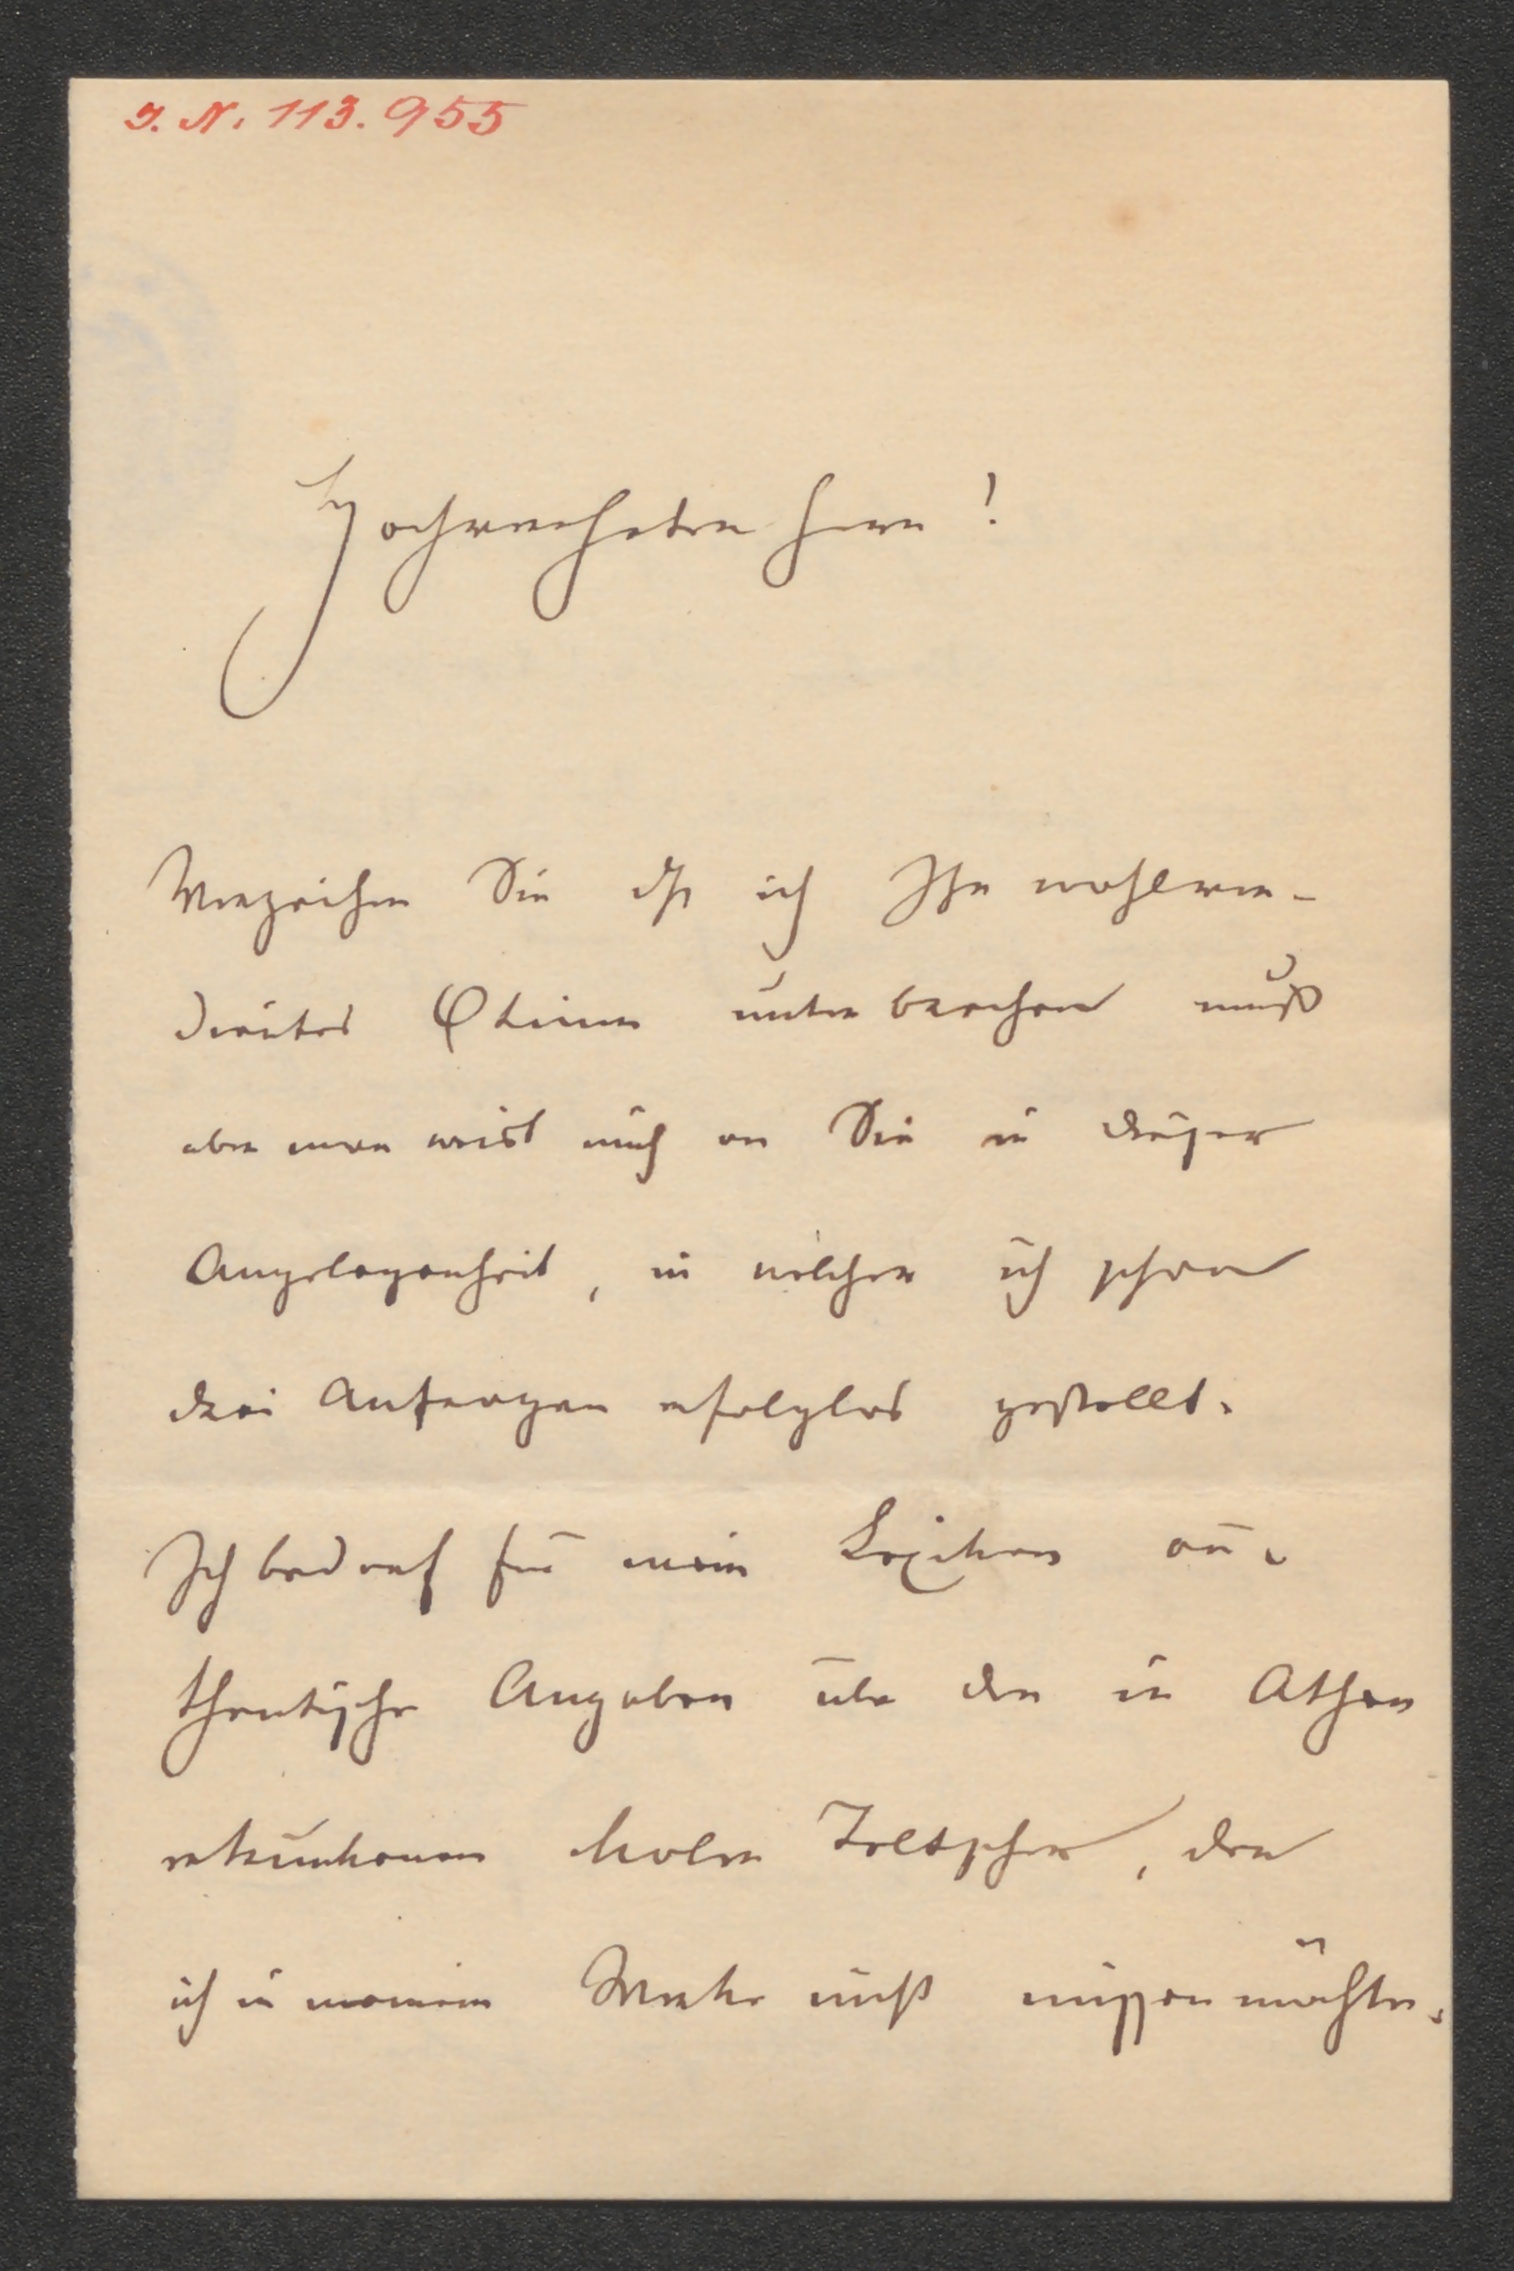 I. N. 113.955
Hochverehrter Herr!
Verzeihen Sie dß ich Ihr wohlver-
dientes Otium unterbrechen muß
aber man weist mich an Sie in dieser
Angelegenheit, in welcher ich schon
drei Anfragen erfolglos gestellt.
Ich bedarf für mein Lexikon au-
thentische Angaben über den in Athen
ertrunkenen Maler Toeltscher, den
ich in meinem Werke nicht missen möchte.